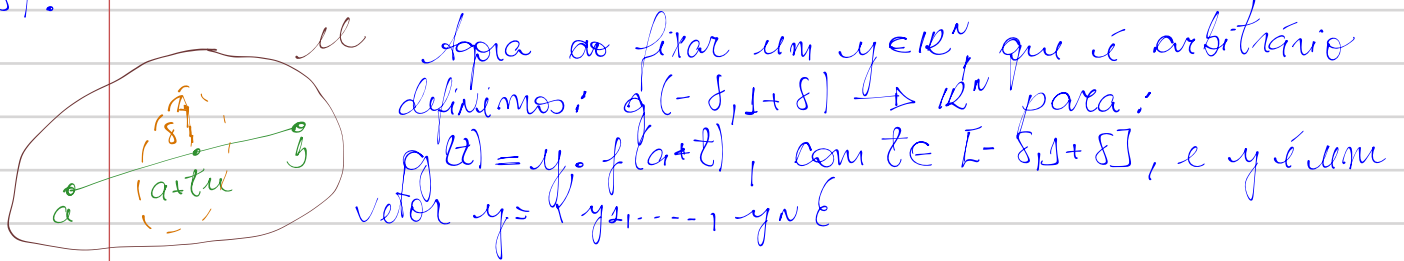 U
Agora ao fixar um y ∈ ℝᴺ, que é arbitrário
definimos: g(-δ, 1+δ) → ℝᴺ para:
g(t) = y · f(a+t), com t ∈ [-δ, 1+δ], e y é um
vetor y = { y1, ...., yN }
δ
b
a+tu
a